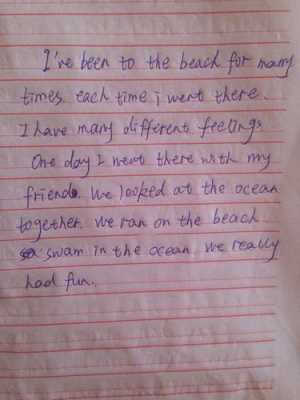 I've been to the beach for many
times. each time i went there.
I have many different feelings
One day I went there with my
friends. We looked at the ocean
together. we ran on the beach
swam in the ocean. we really
had fun.